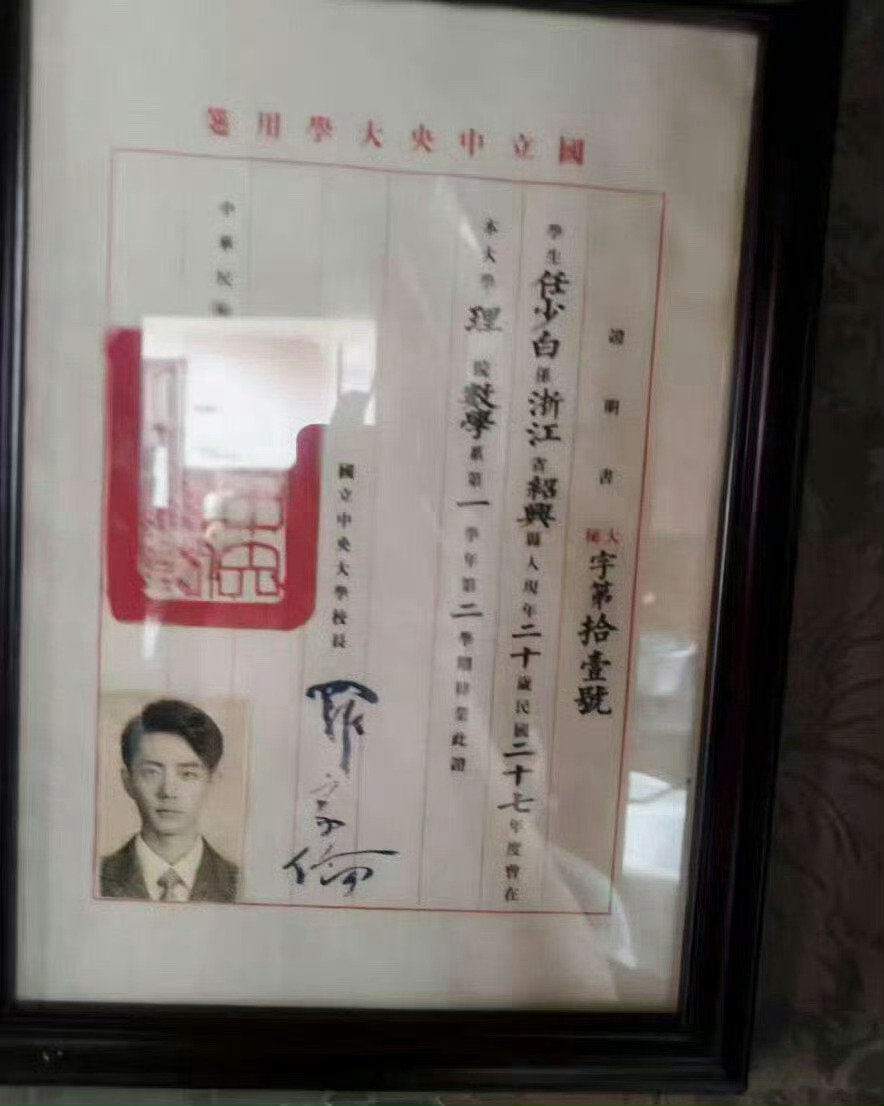 國立中央大學用箋
證明書
大
字第拾壹號
學生任少白係浙江省紹興縣人現年二十歲民國二十七年度曾在
本大學理院數學系第一學年第二學期肄業此證
國立中央大學校長
羅家倫
中華民